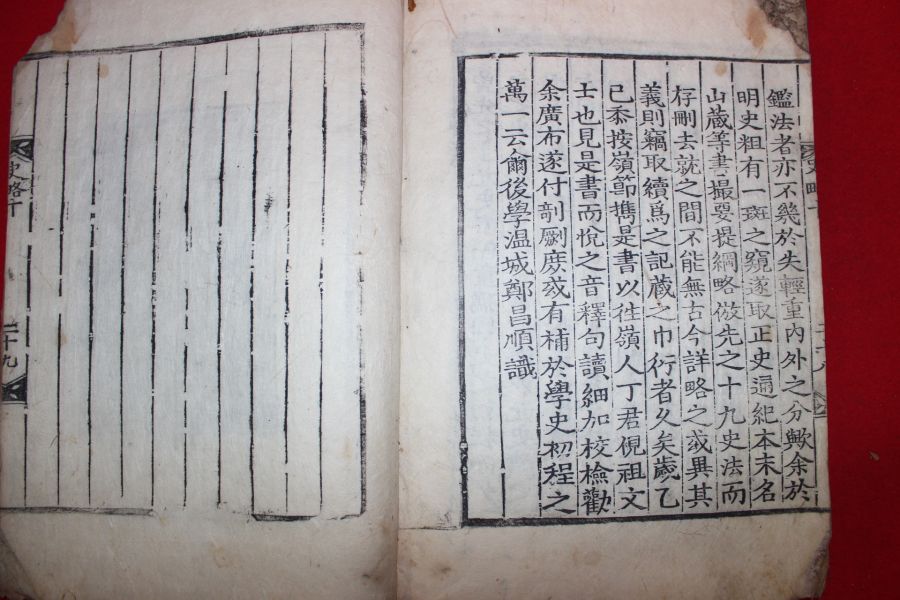 鑑法者亦不幾於失輕重內外之分歟余於
明史粗有一斑之窺遂取正史通紀本末名
山藏等書撮要提綱略倣先之十九史法而
存刪去就之間不能無古今詳略之或異其
義則竊取續爲之記藏之巾衍者久矣歲乙
已忝按嶺節攜是書以徃嶺人丁君俔祖文
士也見是書而悅之音釋句讀細加校檢勸
余廣布遂付剞劂庶或有補於學史初程之
萬一云爾後學温城鄭昌順識
史略十
二十八
史略十
二十九